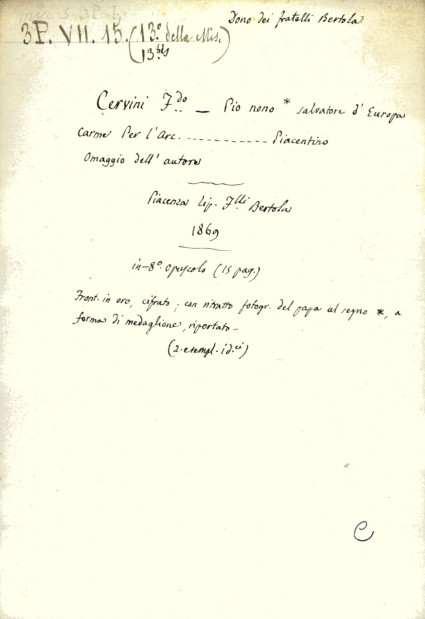 Dono dei fratelli Bertola
3P. VII. 15. (13.º della Mis.)
13 bis
Cervini F.do — Pio nono * salvatore d'Europa
Carme Per l'Arc. ---------- Piacentino
Omaggio dell'autore
Piacenza tip. F.lli Bertola
1869
in-8º opuscolo (15 pag.)
Front. in oro, cifrato; con ritratto fotogr. del papa al segno *, a
forma di medaglione, riportato—
(2. esempl. id.ci)
C